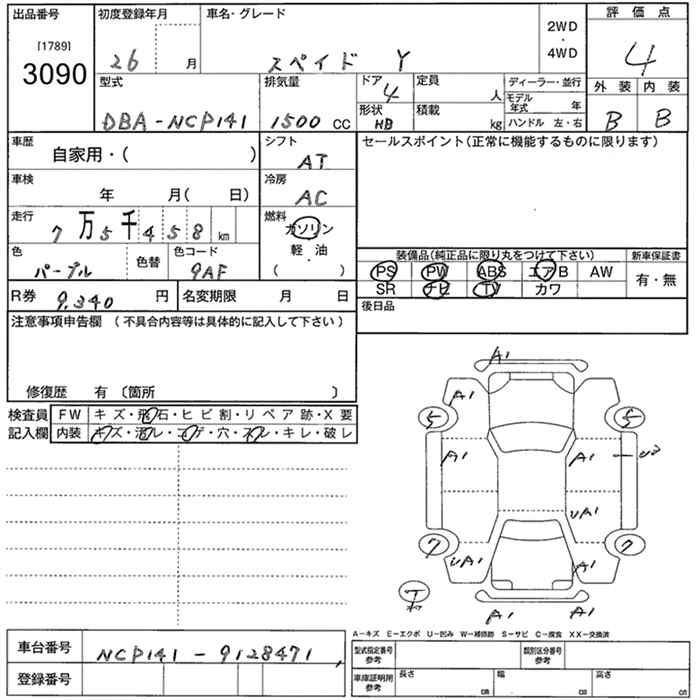 出品番号 初度登録年月 車名・グレード 2WD・4WD 評価点
[1789]
3090 26 月 スペイド Y 4
型式 排気量 ドア 4 定員 人 ディーラー・並行 外装 内装
モデル年式 年
DBA-NCP141 1500 CC 形状 HB 積載 kg ハンドル 左・右 B B
車歴 シフト セールスポイント(正常に機能するものに限ります)
自家用・( ) AT
車検 冷房
年 月( 日) AC
走行 燃料
7万5千458 km ガソリン
軽・油
( ・ )
色 色替 色コード 装備品(純正品に限り丸をつけて下さい) 新車保証書
パープル 9AF PS PW ABS エアB AW 有・無
R券 9,340 円 名変期限 月 日 SR ナビ TV カワ
注意事項申告欄 (不具合内容等は具体的に記入して下さい) 後日品
修復歴 有 〔箇所 〕
検査員 FW キズ・飛石・ヒビ割・リペア跡・X要
記入欄 内装 キズ・汚レ・コゲ・穴・スレ・キレ・破レ
A1
A1
5 5
A1 A1 U2
UA1
7 UA1 A1 7
A1 A1
A-キズ E-エクボ U-凹み W-補修跡 S-サビ C-腐食 XX-交換済
車台番号 NCP141-9128471
型式指定番号 参考 類別区分番号
登録番号 車庫証明用 参考 長さ cm 幅 cm 高さ cm